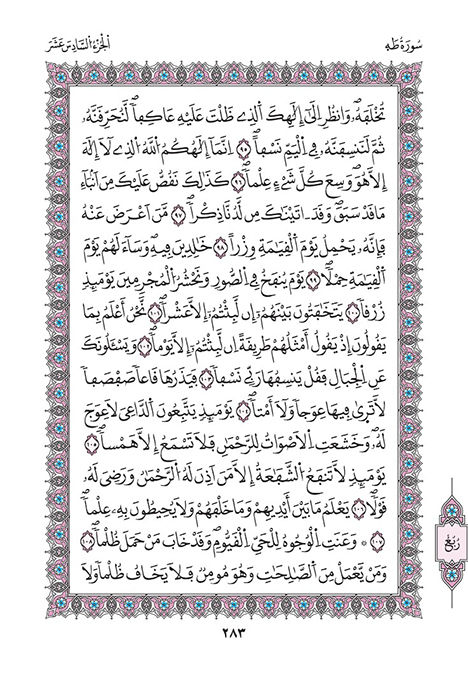 سُورَةُ طَهَ
اَلْجُزْءُ السَّادِسَ عَشَرَ
تُخْلَفَهُۥ وَانظُرِ اِلَىٰٓ إِلَٰهِكَ اَلذِے ظَلْتَ عَلَيْهِ عَاكِفاٗ لَّنُحَرِّقَنَّهُۥ
ثُمَّ لَنَنسِفَنَّهُۥ فِے اِلْيَمِّ نَسْفاًۖ ٩٥ اِنَّمَآ إِلَٰهُكُمُ اللَّهُ الذِے لَآ إِلَٰهَ
إِلَّا هُوَۖ وَسِعَ كُلَّ شَےْءٍ عِلْماٗۖ ٩٦ كَذَٰلِكَ نَقُصُّ عَلَيْكَ مِنَ اَنۢبَآءِ
مَا قَدْ سَبَقَۖ وَقَدَ اٰتَيْنَٰكَ مِن لَّدُنَّا ذِكْراٗۖ ٩٧ مَّنَ اَعْرَضَ عَنْهُ
فَإِنَّهُۥ يَحْمِلُ يَوْمَ اَلْقِيَٰمَةِ وِزْراً ٩٨ خَٰلِدِينَ فِيهِۖ وَسَآءَ لَهُمْ يَوْمَ
اَلْقِيَٰمَةِ حِمْلاٗۖ ٩٩ يَوْمَ يُنفَخُ فِے اِلصُّورِۖ وَنَحْشُرُ اُلْمُجْرِمِينَ يَوْمَئِذٖ
زُرْقاٗ ١٠٠ يَتَخَٰفَتُونَ بَيْنَهُمُۥٓ إِن لَّبِثْتُمُۥٓ إِلَّا عَشْراٗۖ ١٠١ نَّحْنُ أَعْلَمُ بِمَا
يَقُولُونَ إِذْ يَقُولُ أَمْثَلُهُمْ طَرِيقَةً اِن لَّبِثْتُمُۥٓ إِلَّا يَوْماٗۖ ١٠٢ وَيَسْـَٔلُونَكَ
عَنِ اِلْجِبَالِ فَقُلْ يَنسِفُهَا رَبِّے نَسْفاٗ ١٠٣ فَيَذَرُهَا قَاعاٗ صَفْصَفاٗ
لَّا تَرَىٰ فِيهَا عِوَجاٗ وَلَآ أَمْتاٗۖ ١٠٤ يَوْمَئِذٖ يَتَّبِعُونَ اَلدَّاعِيَ لَا عِوَجَ
لَهُۥۖ وَخَشَعَتِ اِلَاصْوَاتُ لِلرَّحْمَٰنِ فَلَا تَسْمَعُ إِلَّا هَمْساٗۖ ١٠٥
يَوْمَئِذٖ لَّا تَنفَعُ اُلشَّفَٰعَةُ إِلَّا مَنَ اَذِنَ لَهُ اُلرَّحْمَٰنُ وَرَضِيَ لَهُۥ
قَوْلاٗۖ ١٠٦ يَعْلَمُ مَا بَيْنَ أَيْدِيهِمْ وَمَا خَلْفَهُمْ وَلَا يُحِيطُونَ بِهِۦ عِلْماٗۖ
١٠٧ ۞ وَعَنَتِ اِلْوُجُوهُ لِلْحَيِّ اِلْقَيُّومِۖ وَقَدْ خَابَ مَنْ حَمَلَ ظُلْماٗۖ ١٠٨
وَمَنْ يَّعْمَلْ مِنَ اَلصَّٰلِحَٰتِ وَهُوَ مُومِنٞ فَلَا يَخَافُ ظُلْماٗ وَلَا
رُبُعٌ
٢٨٣